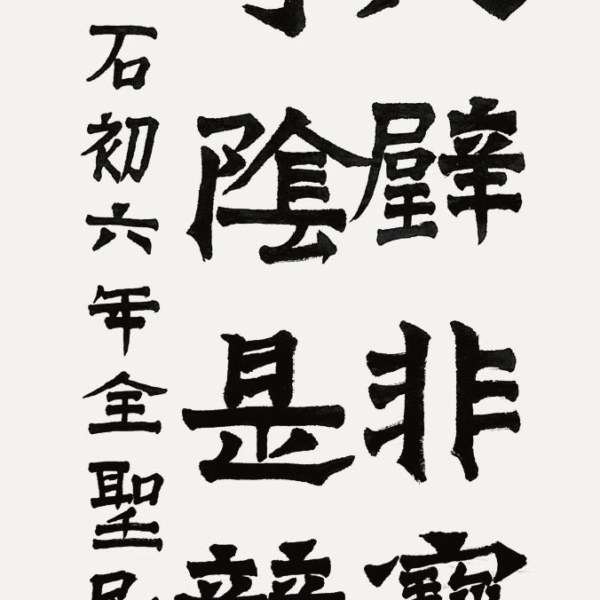 璧非寶
陰是競
石初六年全聖